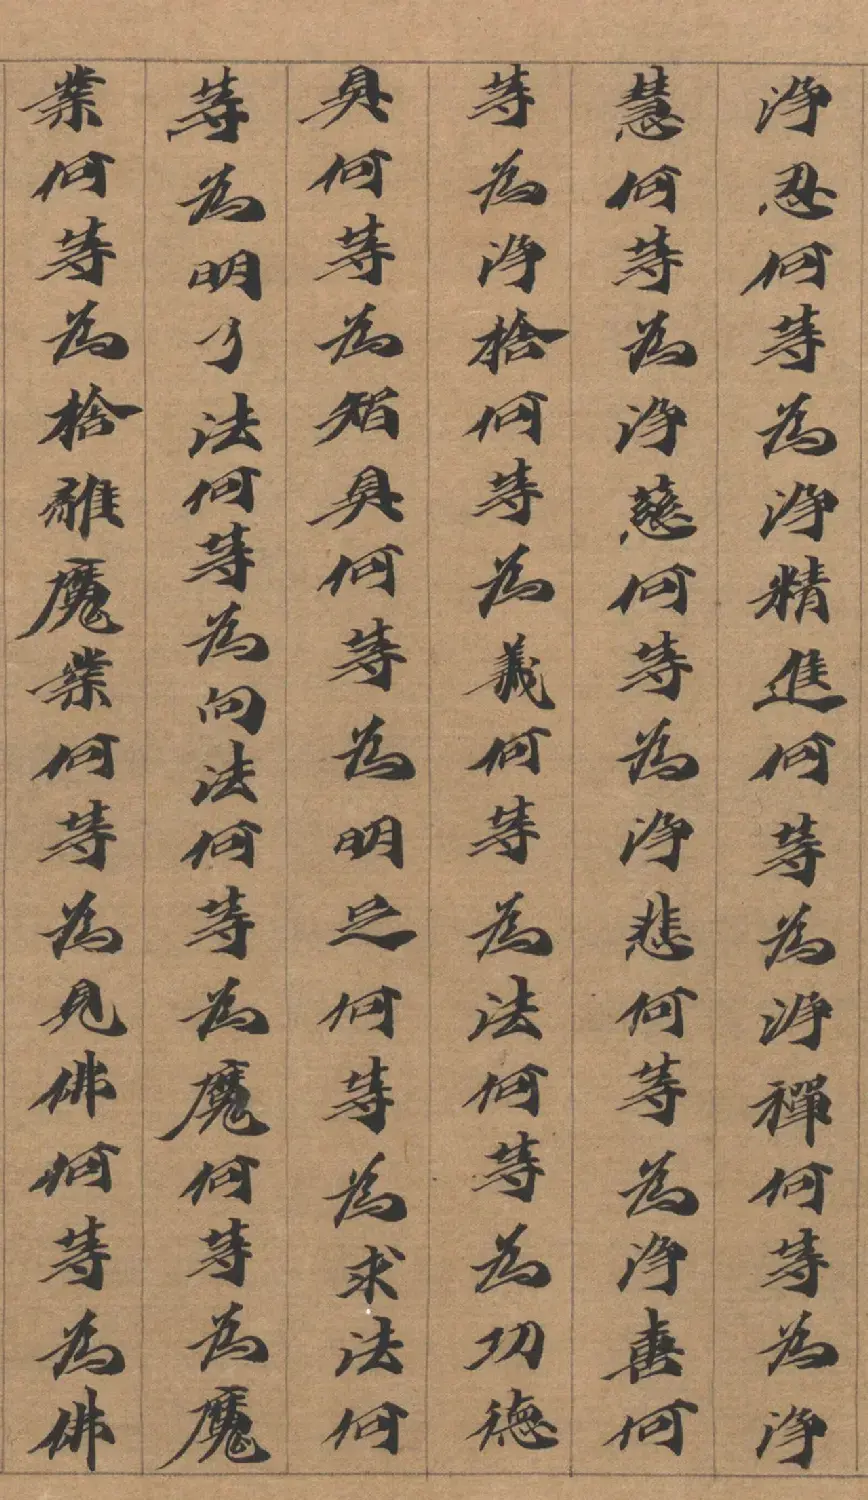 淨忍何等為淨精進何等為淨禪何等為淨
慧何等為淨慈何等為淨悲何等為淨喜何
等為淨捨何等為義何等為法何等為功德
具何等為智具何等為明足何等為求法何
等為明了法何等為向法何等為魔何等為魔
業何等為捨離魔業何等為見佛何等為佛